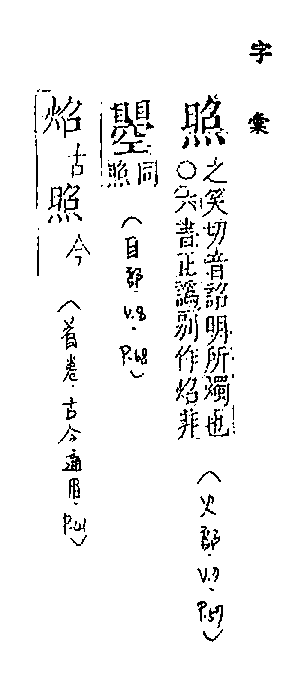 字彙
照之笑切音詔明所燭也
○六書正譌別作炤非
(火部.V.7.P.57)
瞾同照
(目部.V.8.P.68)
炤古照今
(首卷.古今通用.P.41)